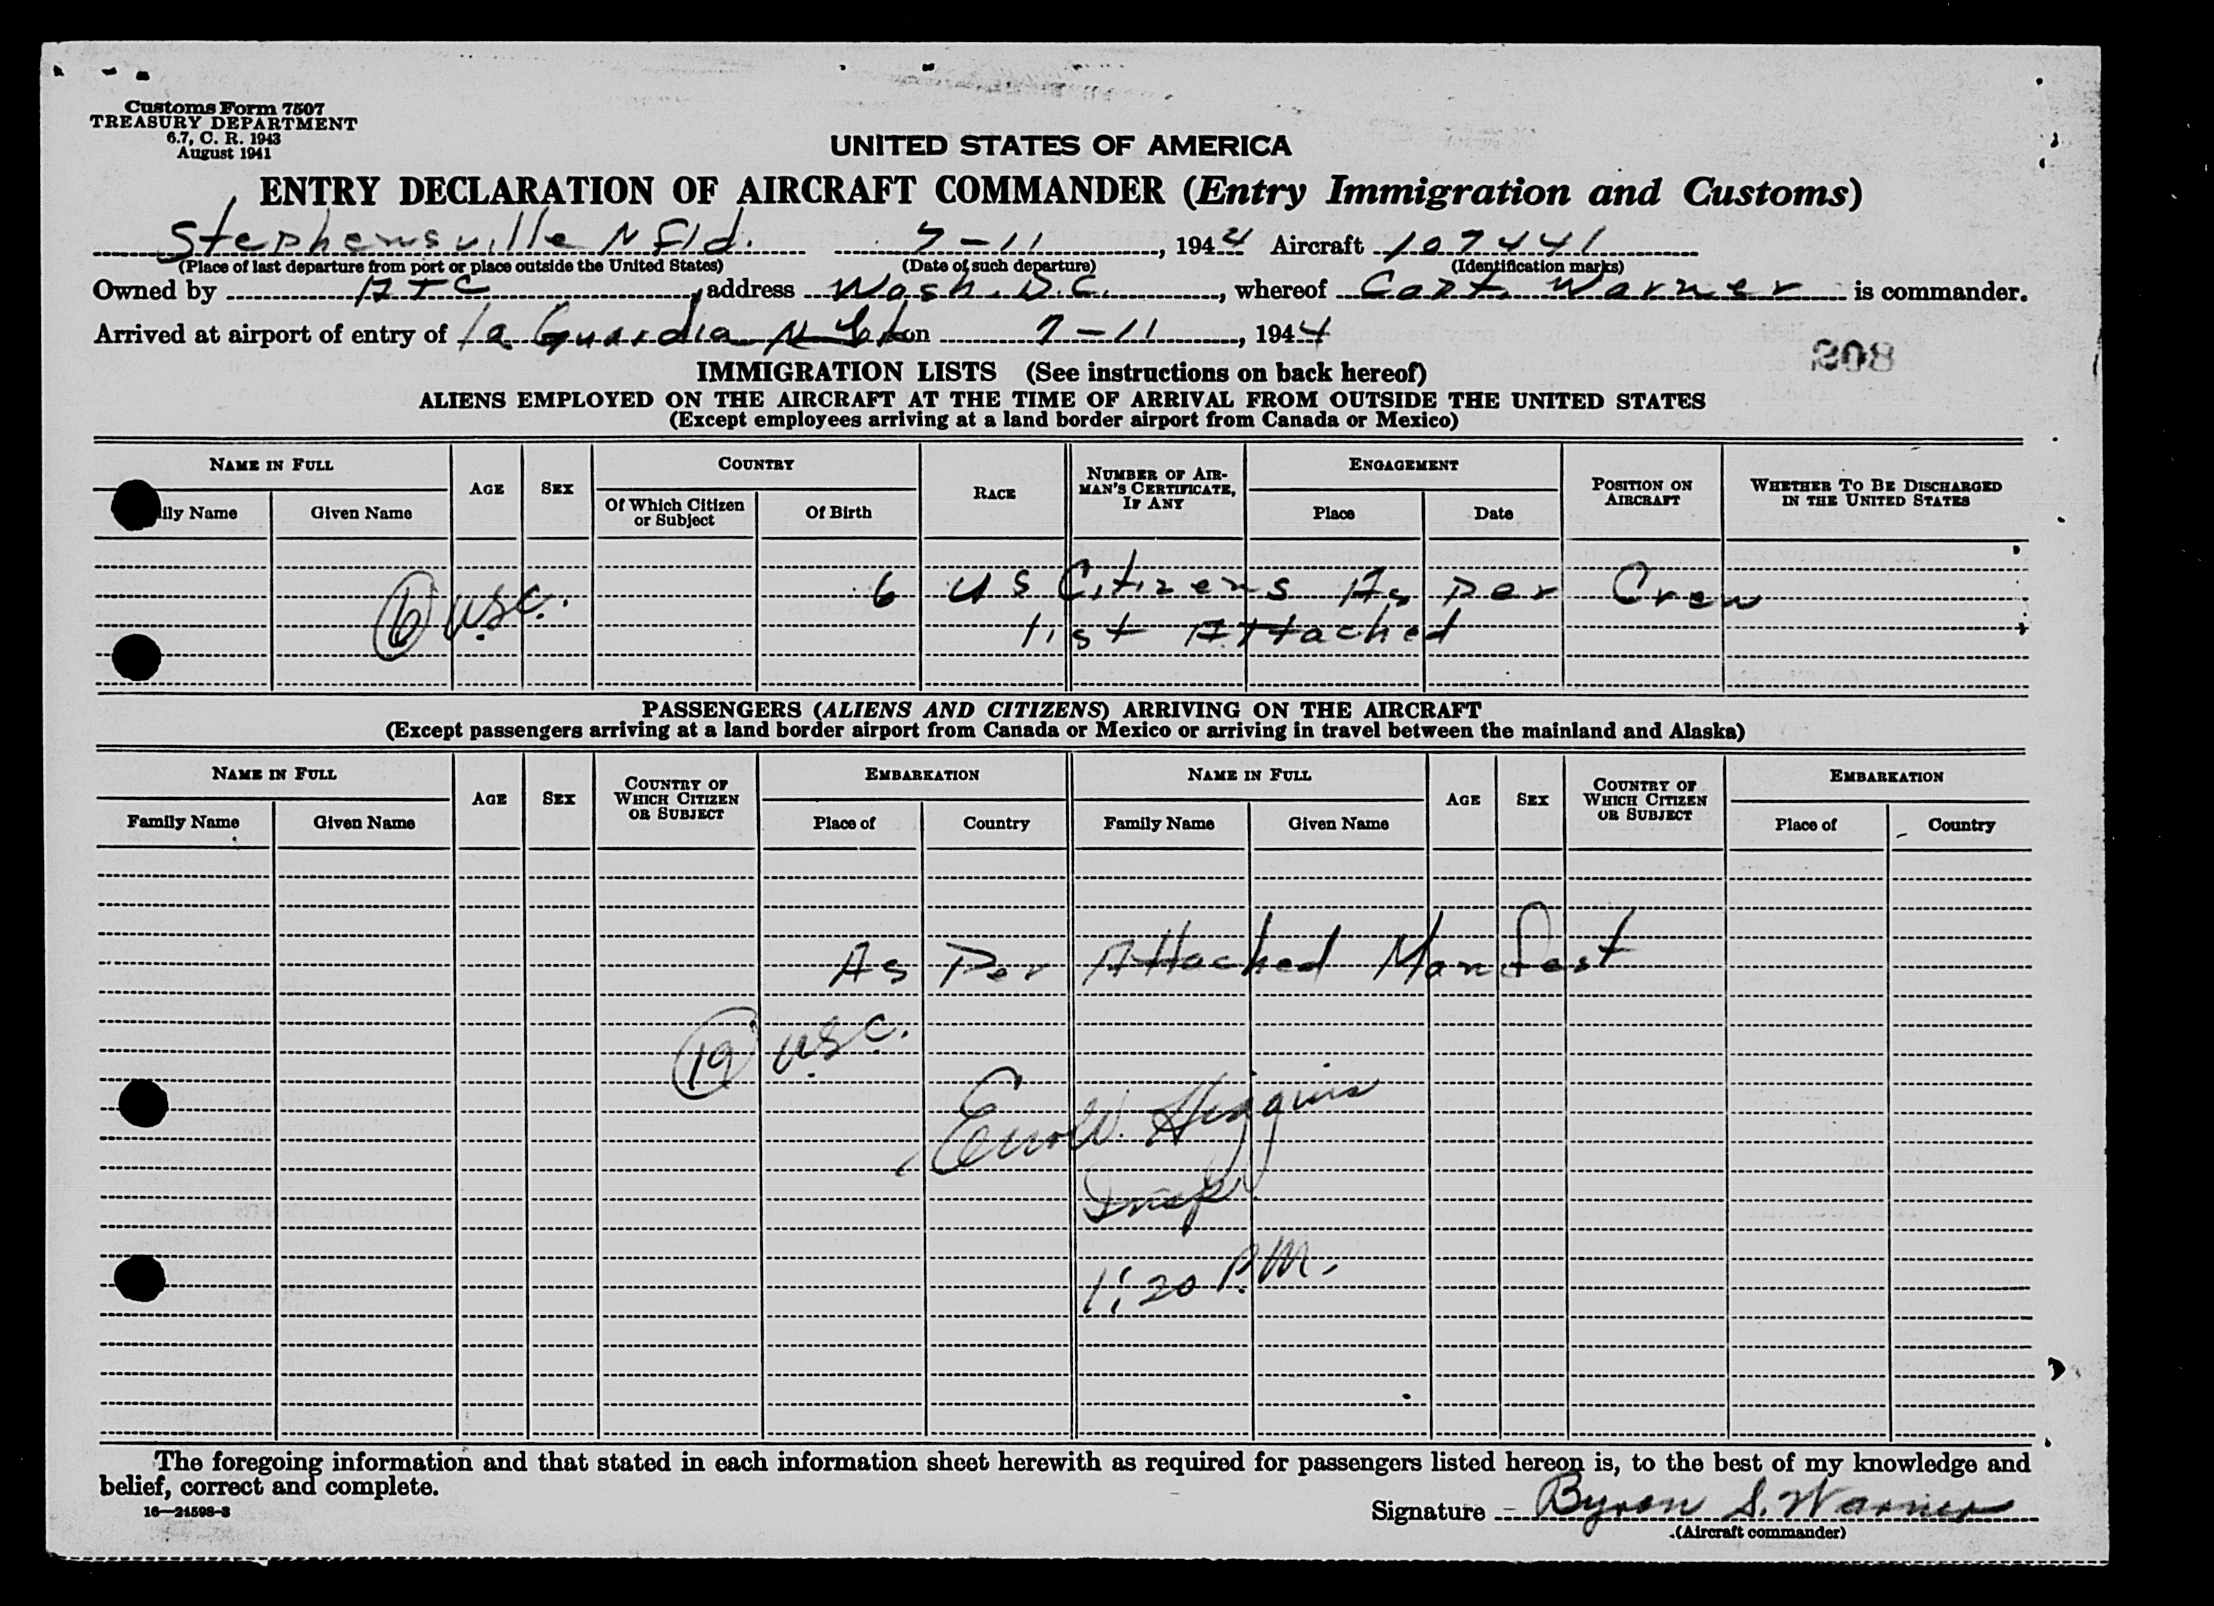 Customs Form 7507
TREASURY DEPARTMENT
6.7, C. R. 1943
August 1941
UNITED STATES OF AMERICA
ENTRY DECLARATION OF AIRCRAFT COMMANDER (Entry Immigration and Customs)
Stephensville Nfld. 7-11, 1944 Aircraft 107441
(Place of last departure from port or place outside the United States) (Date of such departure) (Identification marks)
Owned by ATC, address Wash. D.C., whereof Capt. Warner is commander.
Arrived at airport of entry of La Guardia N.Y. on 7-11, 1944
208
IMMIGRATION LISTS (See instructions on back hereof)
ALIENS EMPLOYED ON THE AIRCRAFT AT THE TIME OF ARRIVAL FROM OUTSIDE THE UNITED STATES
(Except employees arriving at a land border airport from Canada or Mexico)
NAME IN FULL AGE SEX COUNTRY RACE NUMBER OF AIRMAN'S CERTIFICATE, IF ANY ENGAGEMENT POSITION ON AIRCRAFT WHETHER TO BE DISCHARGED IN THE UNITED STATES
ily Name Given Name Of Which Citizen or Subject Of Birth Place Date
6 USC. 6 US Citizens As per Crew
list Attached
PASSENGERS (ALIENS AND CITIZENS) ARRIVING ON THE AIRCRAFT
(Except passengers arriving at a land border airport from Canada or Mexico or arriving in travel between the mainland and Alaska)
NAME IN FULL AGE SEX COUNTRY OF WHICH CITIZEN OR SUBJECT EMBARKATION NAME IN FULL AGE SEX COUNTRY OF WHICH CITIZEN OR SUBJECT EMBARKATION
Family Name Given Name Place of Country Family Name Given Name Place of Country
As Per Attached Manifest
19 USC.
Higgins
Insp
1:20 P.M.
The foregoing information and that stated in each information sheet herewith as required for passengers listed hereon is, to the best of my knowledge and
belief, correct and complete.
16—24598-3
Signature Byron S. Warner
(Aircraft commander)